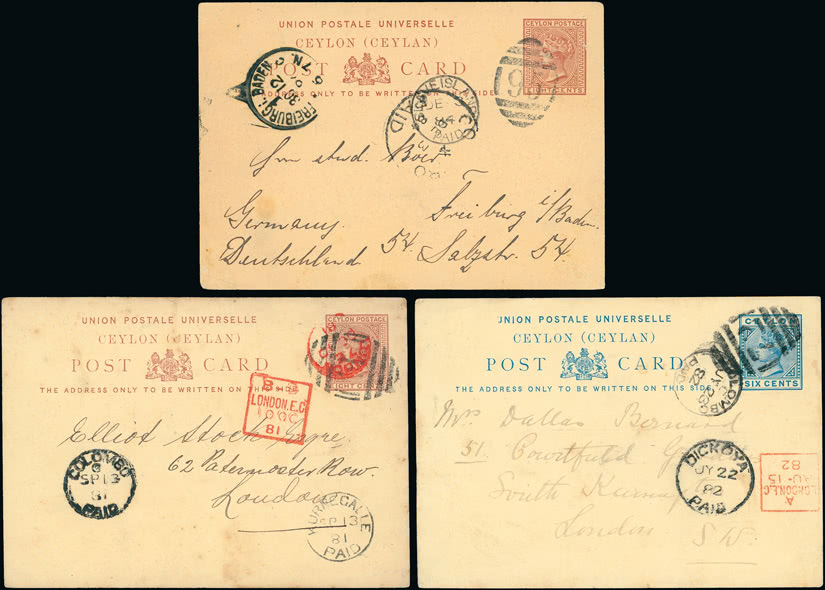 UNION POSTALE UNIVERSELLE
CEYLON (CEYLAN)
POST CARD
THE ADDRESS ONLY TO BE WRITTEN ON THIS SIDE
CEYLON POSTAGE
EIGHT CENTS
FREIBURG I. BADEN
SLAVE ISLAND
JE
84
PAID
Germany.
Deutschland
Freiburg i/Baden.
54. Salzstr. 54.
UNION POSTALE UNIVERSELLE
CEYLON (CEYLAN)
POST CARD
THE ADDRESS ONLY TO BE WRITTEN ON THIS SIDE
CEYLON POSTAGE
EIGHT CENTS
LONDON.E.C
81
Elliot Stock Esqre.
62 Paternoster Row.
London
COLOMBO
SP 13
81
PAID
KURNEGALLE
SP 13
81
PAID
UNION POSTALE UNIVERSELLE
CEYLON (CEYLAN)
POST CARD
THE ADDRESS ONLY TO BE WRITTEN ON THIS SIDE
CEYLON
SIX CENTS
COLOMBO
JY 23
82
PAID
Mrs Dallas Bernard
51. Courtfield
South Kensington
London
S.W.
DICKOYA
JY 22
82
PAID
LONDON.E.C
A
AU 15
82